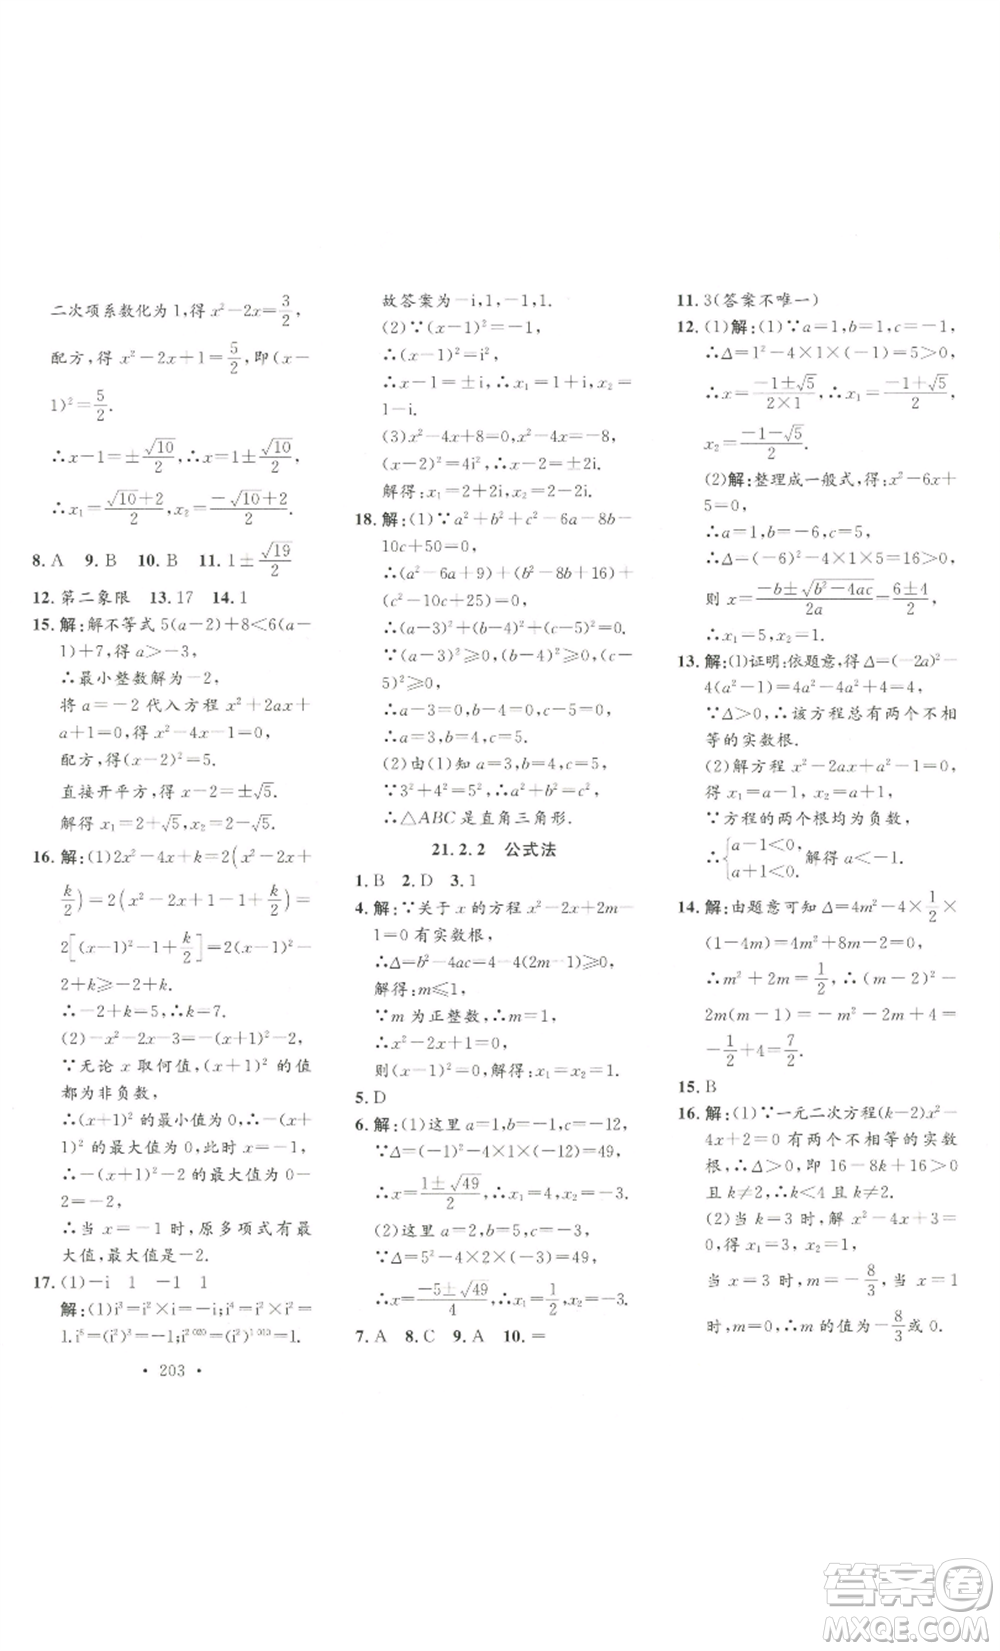 二次项系数化为1,得 x²-2x=3/2,
配方,得 x²-2x+1=5/2,即(x-
1)²=5/2.
∴x-1=±√10/2,∴x=1±√10/2,
∴x₁=(√10+2)/2,x₂=(-√10+2)/2.
8. A 9. B 10. B 11. 1±√19/2
12. 第二象限 13. 17 14. 1
15. 解:解不等式 5(a-2)+8<6(a-
1)+7,得 a>-3,
∴最小整数解为-2,
将 a=-2 代入方程 x²+2ax+
a+1=0,得 x²-4x-1=0,
配方,得(x-2)²=5.
直接开平方,得 x-2=±√5.
解得 x₁=2+√5,x₂=2-√5.
16. 解:(1)2x²-4x+k=2(x²-2x+
k/2)=2(x²-2x+1-1+k/2)=
2[(x-1)²-1+k/2]=2(x-1)²-
2+k≥-2+k.
∴-2+k=5,∴k=7.
(2)-x²-2x-3=-(x+1)²-2,
∵无论 x 取何值,(x+1)² 的值
都为非负数,
∴(x+1)² 的最小值为 0,-(x+
1)² 的最大值为0,此时 x=-1,
则 -(x+1)²-2 的最大值为
0-2=-2,
∴当 x=-1 时,原多项式有最
大值,最大值是-2.
17. (1)-i 1 -1 1
解:(1)i³=i²×i=-i;i⁴=i²×i²=
1.i⁶=(i²)³=-1;i²⁰²⁰=(i²)¹⁰¹⁰=1.
· 203 ·
故答案为-i,1,-1,1.
(2)∵(x-1)²=-1,
∴(x-1)²=i²,
∴x-1=±i,∴x₁=1+i,x₂=
1-i.
(3)x²-4x+8=0,x²-4x=-8,
(x-2)²=4i²,∴x-2=±2i.
解得:x₁=2+2i,x₂=2-2i.
18. 解:(1)∵a²+b²+c²-6a-8b-
10c+50=0,
∴(a²-6a+9)+(b²-8b+16)+
(c²-10c+25)=0.
即(a-3)²+(b-4)²+(c-5)²=0.
∵(a-3)²≥0,(b-4)²≥0,(c-
5)²≥0,
∴a-3=0,b-4=0,c-5=0.
∴a=3,b=4,c=5.
(2)由(1)知a=3,b=4,c=5,
∵3²+4²=5²,∴a²+b²=c²,
∴△ABC是直角三角形.
21.2.2 公式法
1. B 2. D 3. 1
4. 解:∵关于 x 的方程 x²-2x+2m-
1=0 有实数根,
∴Δ=b²-4ac=4-4(2m-1)≥0,
解得:m≤1,
∵m 为正整数,∴m=1,
∴x²-2x+1=0,
则(x-1)²=0,解得:x₁=x₂=1.
5. D
6. 解:(1)这里 a=1,b=-1,c=-12,
∵Δ=(-1)²-4×1×(-12)=49,
∴x=(1±√49)/2,∴x₁=4,x₂=-3.
(2)这里 a=2,b=5,c=-3,
∵Δ=5²-4×2×(-3)=49,
∴x=(-5±√49)/4,∴x₁=1/2,x₂=-3.
7. A 8. C 9. A 10. =
11. 3(答案不唯一)
12. (1)解:(1)∵a=1,b=1,c=-1,
∴Δ=1²-4×1×(-1)=5>0,
∴x=(-1±√5)/(2×1),∴x₁=(-1+√5)/2,
x₂=(-1-√5)/2.
(2)解:整理成一般式:x²-6x+
5=0,
∴a=1,b=-6,c=5,
∴Δ=(-6)²-4×1×5=16>0,
则 x=(-b±√(b²-4ac))/2a=(6±4)/2,
∴x₁=5,x₂=1.
13. 解:(1)证明:依题意,得Δ=(-2a)²-
4(a²-1)=4a²-4a²+4=4,
∵Δ>0,∴该方程总有两个不相
等的实数根.
(2)解方程 x²-2ax+a²-1=0,
得 x₁=a-1,x₂=a+1,
∵方程的两个根均为负数,
∴{a-1<0, a+1<0. 解得a<-1.
14. 解:由题意可知 Δ=4m²-4×1/2×
(1-4m)=4m²+8m-2=0,
∴m²+2m=1/2,∴(m-2)²-
2m(m-1)=-m²-2m+4=
-1/2+4=7/2.
15. B
16. 解:(1)∵一元二次方程(k-2)x²-
4x+2=0 有两个不相等的实数
根,∴Δ>0,即 16-8k+16>0,
且 k≠2,∴k<4 且k≠2.
(2)当 k=3 时,x²-4x+3=0,
得 x₁=3,x₂=1,
当 x=3 时,m=-8/3,当 x=1
时,m=0,∴m 的值为-8/3或0.
答案卷
MXQE.COM